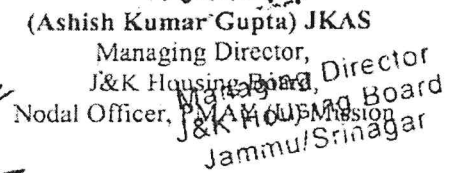 (Ashish Kumar Gupta) JKAS
Managing Director,
J&K Housing Board,
Nodal Officer, PMAY (U) Mission
Managing Director
J&K Housing Board
Jammu/Srinagar